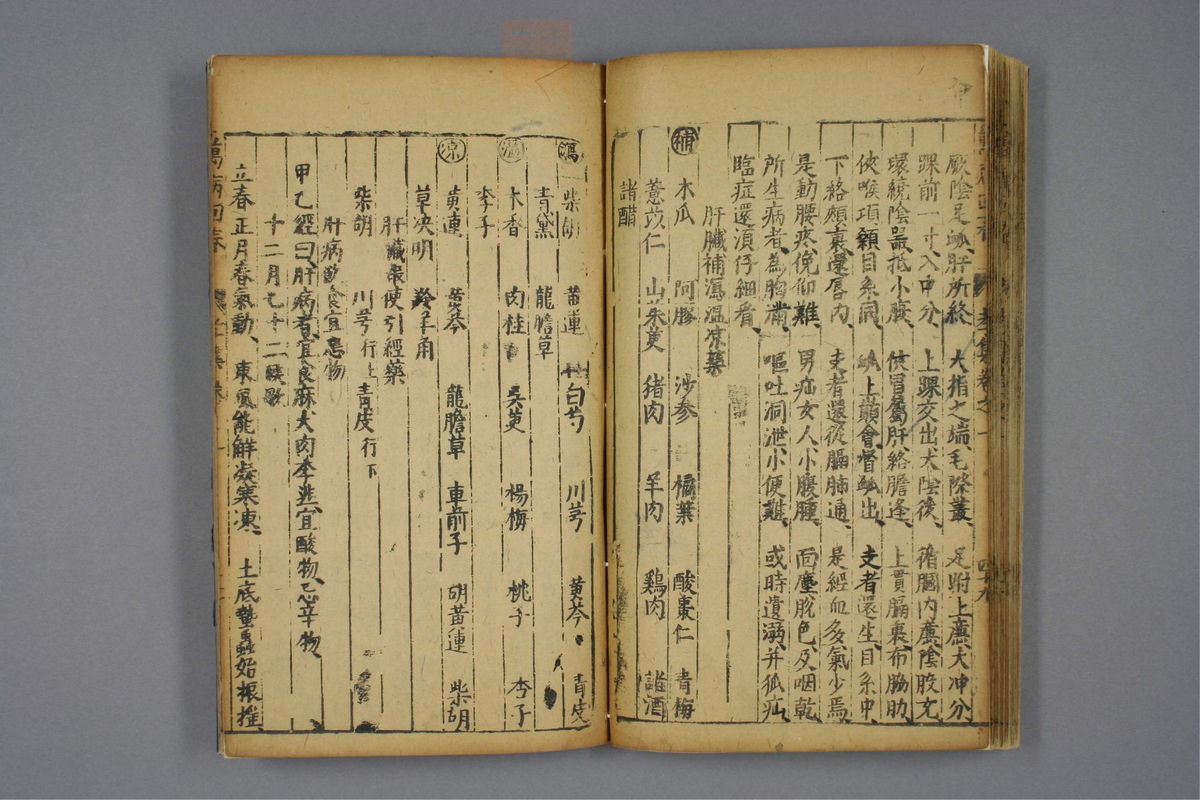 厥陰足䘑肝所終 大指之端毛際叢 足跗上廉大冲分
踝前一寸入中分 上踝交出太陰後 循膕内廉陰股充
環繞陰器抵小腹 使胃屬肝絡膽逢 上貫膈裏布脇肋
俠喉頏顙目系同 䘑上巔會督䘑出 支者還生目系中
下絡頰裏還唇内 支者還從膈肺通 是經血多氣少焉
是動腰疼俛仰難 男疝女人小腹腫 面塵脫色及咽乾
所生病者為胸滿 嘔吐洞泄小便難 或時遺溺并狐疝
臨症還湏仔細看
肝臟補瀉温凉藥
補 木瓜 阿膠 沙參 橘葉 酸棗仁 青梅
薏苡仁 山茱萸 猪肉 羊肉 鷄肉 諸酒
諸醋
瀉 柴胡 黄連 白芍 川芎 黄芩 青皮
青黛 龍膽草
温 木香 肉桂 吳萸 楊梅 桃子 李子
李子
凉 黄連 黄芩 龍膽草 車前子 胡黄連 柴胡
草决明 羚羊角
肝臟 使引經藥
柴胡 川芎行上 青皮行下
肝病 食宜忌物
甲乙經曰肝病者宜食麻犬肉李韭宜酸物忌辛物
十二月七十二候歌
立春正月春氣動 東風能解凝寒凍 土底蟄蟲始振摧
萬病回春